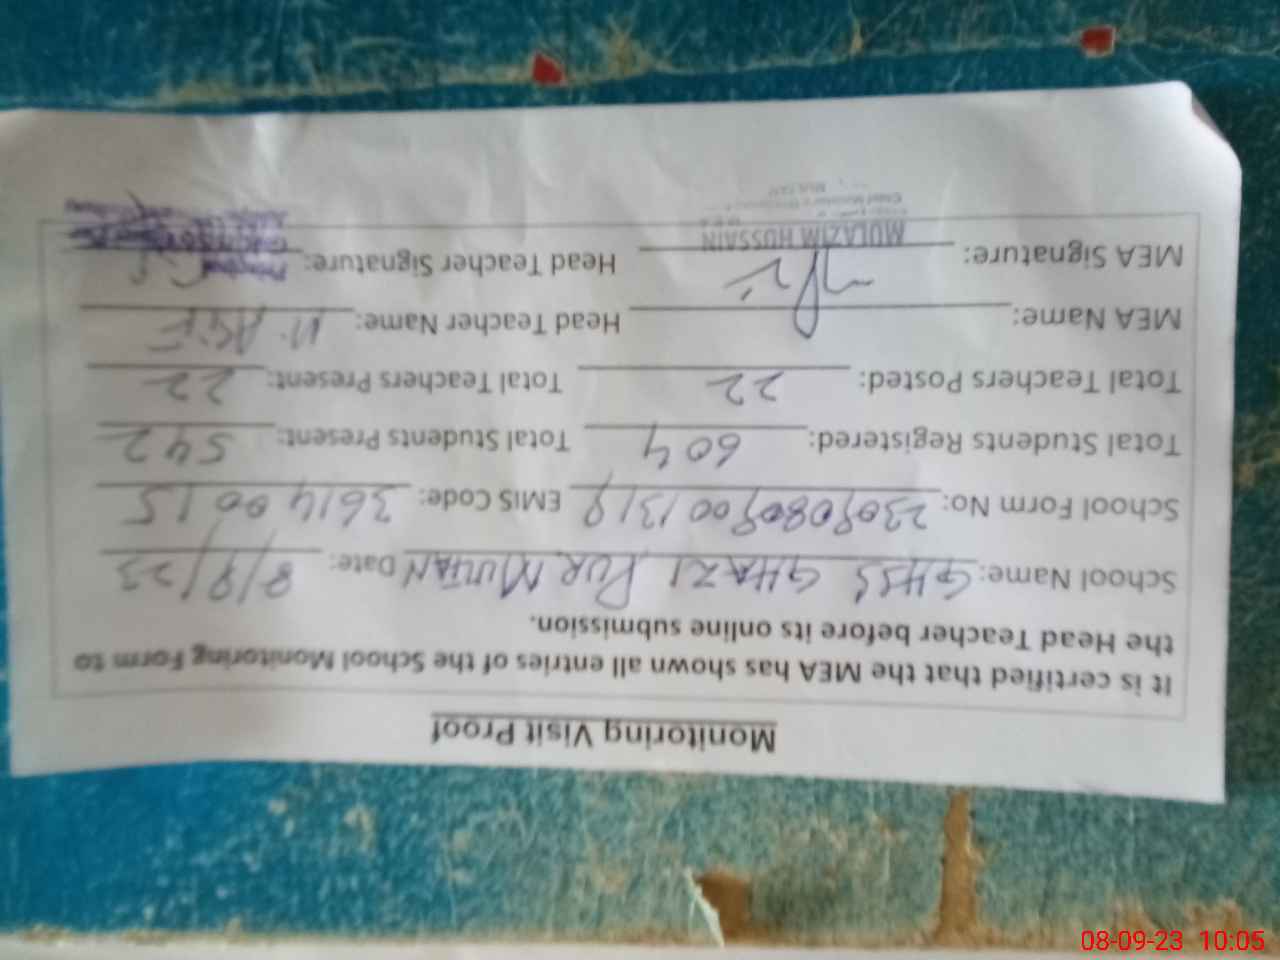 Monitoring Visit Proof
It is certified that the MEA has shown all entries of the School Monitoring Form to
the Head Teacher before its online submission.
School Name: GHSS GHAZI PUR MULTAN Date: 8/9/23
School Form No: 23090809001319 EMIS Code: 36140015
Total Students Registered: 604 Total Students Present: 542
Total Teachers Posted: 22 Total Teachers Present: 22
MEA Name: Head Teacher Name: M. ASIF
MEA Signature: Head Teacher Signature:
MULAZIM HUSSAIN
Principal
08-09-23 10:05